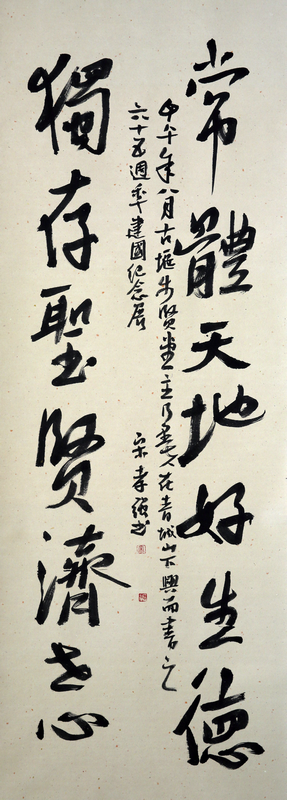 常體天地好生德
獨存聖賢濟世心
甲午年八月古堰步賢堂主乃在青城山下興而書之
六十五週年建國紀念展
宋孝書